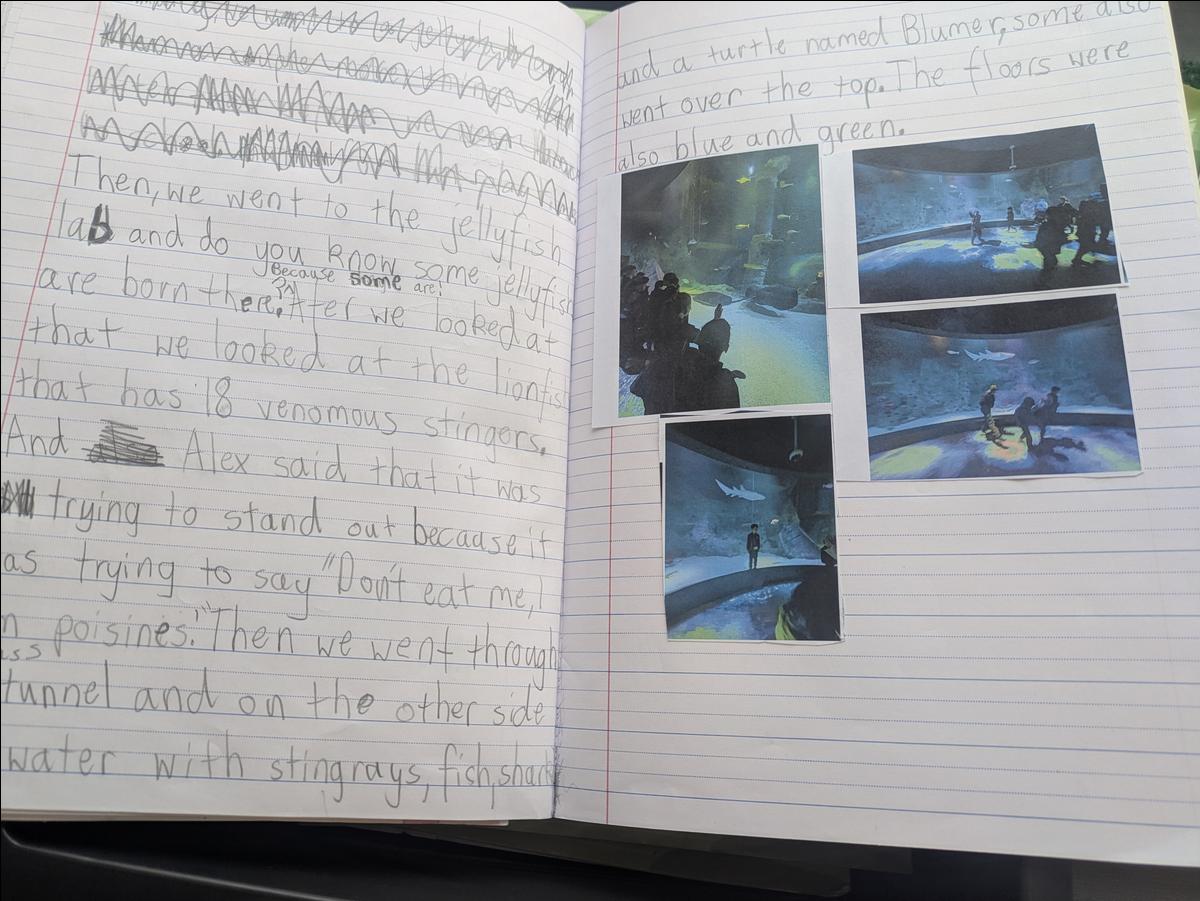 Then, we went to the jellyfish
lab and do you know some jellyfish
Because some are!
are born there? After we looked at
that we looked at the lionfis
that has 18 venomous stingers.
And Alex said that it was
trying to stand out becaase it
as trying to say "Don't eat me, I
n poisines." Then we went through
ass
tunnel and on the other side
water with stingrays, fish, shark
and a turtle named Blumer, some also
went over the top. The floors were
also blue and green.